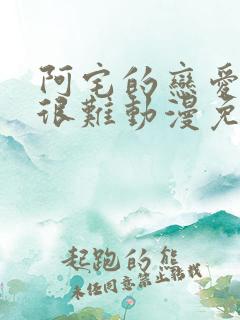 阿宅的戀愛
很難動漫免
起跑的熊
未任同意禁止轉載